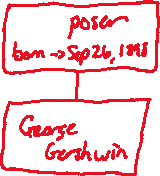 poser
born → Sep 26, 1898
George
Gershwin